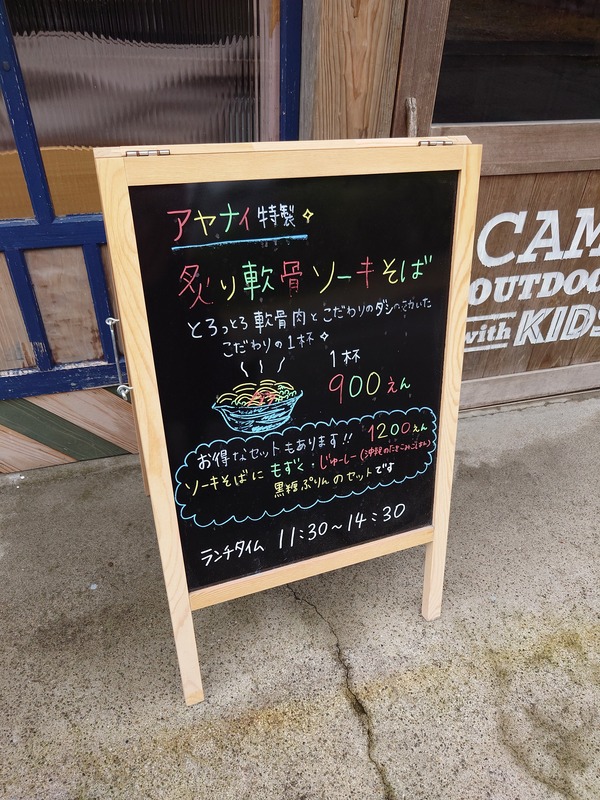 アヤナイ特製
炙り軟骨ソーキそば
とろっとろ軟骨肉とこだわりのダシのきいた
こだわりの1杯
1杯
900えん
お得なセットもあります!! 1200えん
ソーキそばにもずく・じゅーしー(沖縄のたきこみごはん)
黒糖ぷりんのセットです
ランチタイム 11:30〜14:30
CAM
OUTDOO
with KIDS